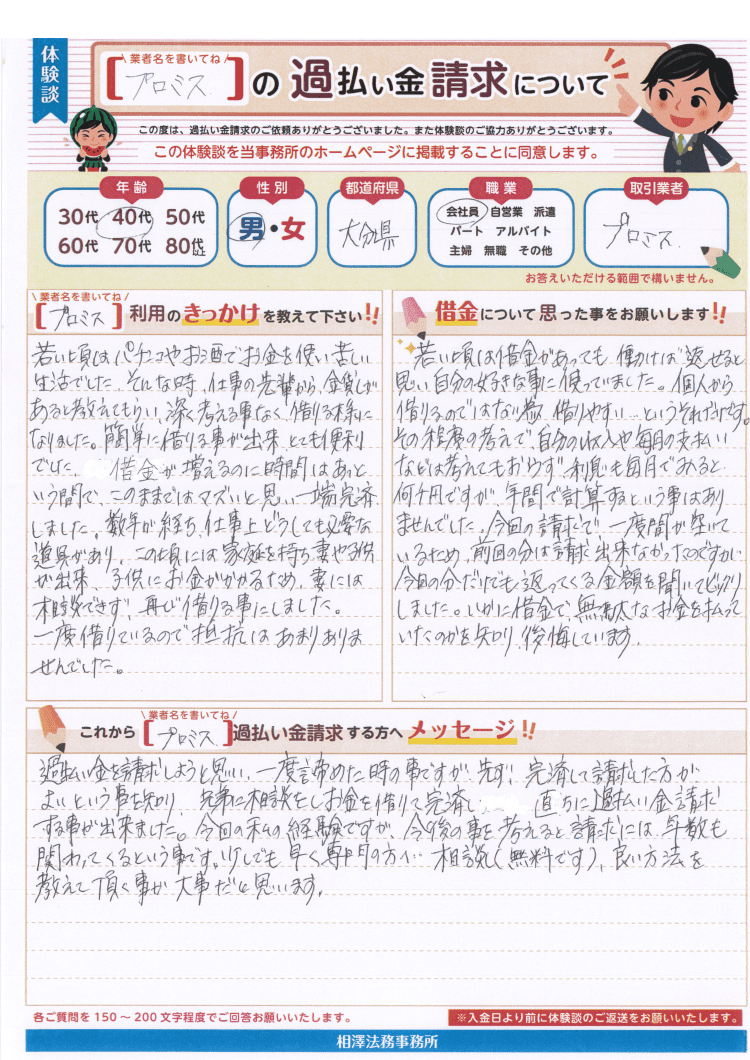 体験談
\ 業者名を書いてね /
[プロミス]の過払い金請求について
この度は、過払い金請求のご依頼ありがとうございました。また体験談のご協力ありがとうございます。
この体験談を当事務所のホームページに掲載することに同意します。
年齢
30代 40代 50代
60代 70代 80代以上
性別
男・女
都道府県
大分県
職業
会社員 自営業 派遣
パート アルバイト
主婦 無職 その他
取引業者
プロミス
お答えいただける範囲で構いません。
\ 業者名を書いてね /
[プロミス]利用のきっかけを教えて下さい!!
若い頃はパチンコやお酒でお金を使い苦しい
生活でした。そんな時、仕事の先輩から、金貸しが
あると教えてもらい、深く考える事なく、借りる様に
なりました。簡単に借りる事が出来、とても便利
でした。借金が増えるのに時間はあっと
いう間で、このままではマズいと思い一端完済
しました。数年が経ち、仕事上どうしても必要な
道具があり、この頃には家庭を持ち妻や子供
が出来、子供にお金がかかるため、妻には
相談できず、再び借りる事にしました。
一度借りているので抵抗はあまりありま
せんでした。
借金について思った事をお願いします!!
若い頃は借金があっても、働けば返せると
思い自分の好きな事に使っていました。個人から
借りるのではない為、借りやすい…というそれだけです。
その程度の考えで、自分の収入や毎月の支払い
などは考えてもおらず、利息も毎月でみると
何千円ですが、年間で計算するという事はあり
ませんでした。今回の請求で、一度間が空いて
いるため、前回の分は請求出来なかったのですが
今回の分だけでも返ってくる金額を聞いてビックリ
しました。いかに借金で、無駄なお金を払って
いたのかを知り、後悔しています。
\ 業者名を書いてね /
これから[プロミス]過払い金請求する方へメッセージ!!
過払い金を請求しようと思い、一度諦めた時の事ですが、先ず、完済して請求した方が
よいという事を知り、兄弟に相談をしお金を借りて完済し、直ちに過払い金請求
する事が出来ました。今回の私の経験ですが、今後の事を考えると請求には、年数も
関わってくるという事です。少しでも早く専門の方へ…相談(無料です)、良い方法を
教えて頂く事が大事だと思います。
各ご質問を150～200文字程度でご回答お願いいたします。
※入金日より前に体験談のご返送をお願いいたします。
相澤法務事務所